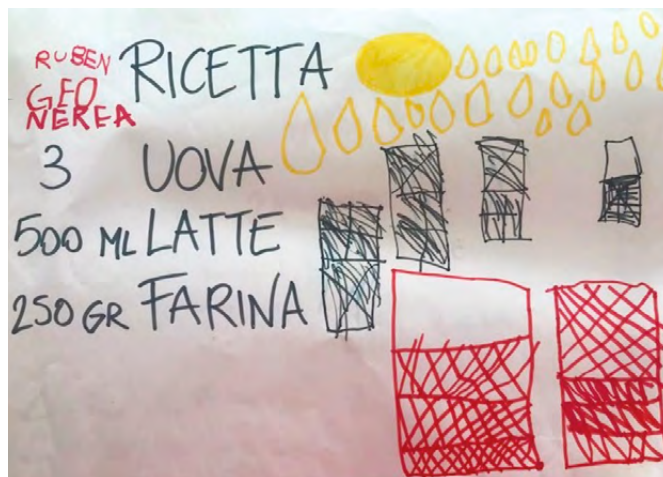 RUBEN
GEO
NEREA
RICETTA
3 UOVA
500 ML LATTE
250 GR FARINA